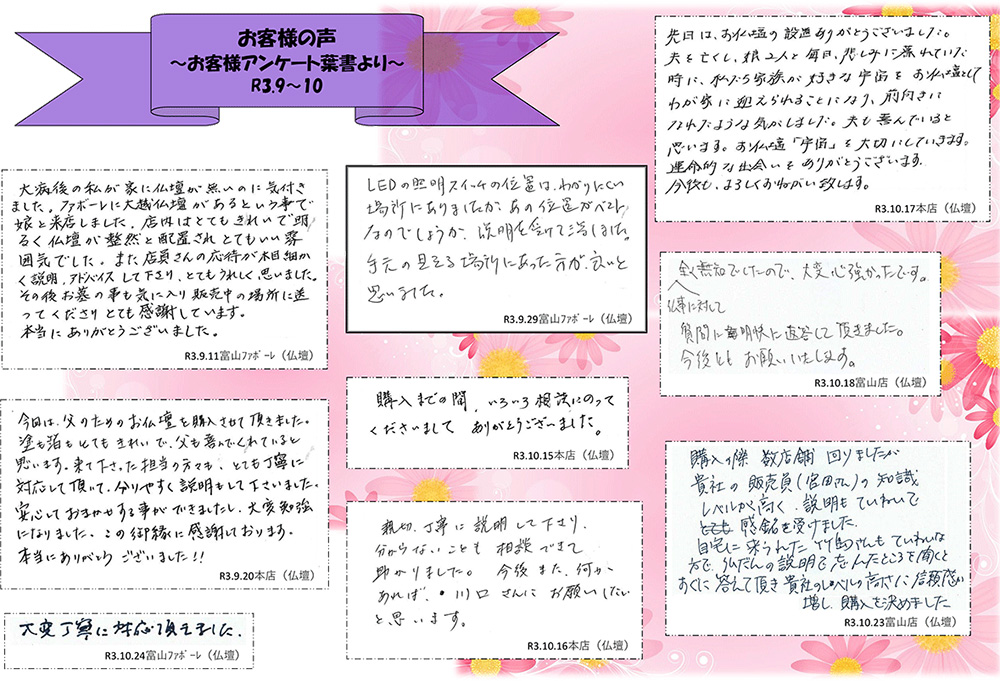 お客様の声
～お客様アンケート葉書より～
R3.9～10
大病後の私が家に仏壇が無いのに気付き
ました。ファボーレに大越仏壇があるという事で
娘と来店しました。店内はとてもきれいで明
るく仏壇が整然と配置されとてもいい雰
囲気でした。また店員さんの応待が木目細か
く説明、アドバイスして下さり、とてもうれしく思いました。
その後お墓の事も気に入り販売中の場所に送
ってくださりとても感謝しています。
本当にありがとうございました。
R3.9.11富山ﾌｧﾎﾞｰﾚ（仏壇）
今回は、父のためのお仏壇を購入させて頂きました。
塗も箔もとてもきれいで、父も喜んでくれていると
思います。来て下さった担当の方でも、とても丁寧に
対応して頂いて、分りやすく説明もして下さいました。
安心しておまかせする事ができましたし、大変勉強
になりました。この御縁に感謝しております。
本当にありがとうございました!!
R3.9.20本店（仏壇）
大変丁寧に対応頂きました。
R3.10.24富山ﾌｧﾎﾞｰﾚ（仏壇）
LEDの照明スイッチの位置は、わかりにくい
場所にありましたが、あの位置がベスト
なのでしょうか、説明を受けて納得しました。
手元の見える場所にあった方が、良いと
思いました。
R3.9.29富山ﾌｧﾎﾞｰﾚ（仏壇）
購入までの間、いろいろ相談にのって
くださいまして ありがとうございました。
R3.10.15本店（仏壇）
親切、丁寧に説明して下さり、
分からないことも 相談できて
助かりました。 今後また、何か
あれば、・川口さんにお願いしたい
と思います。
R3.10.16本店（仏壇）
先日は、お仏壇の設置ありがとうございました。
夫を亡くし、娘2人と毎日、悲しみに暮れていた
時に、私たち家族が好きな宇宙をお仏壇として
わが家に迎えられることになり、前向きに
なれたような気がしました。夫も喜んでいると
思います。お仏壇「宇宙」を大切にしていきます。
運命的な出会いをありがとうございます。
今後も、よろしくおねがい致します。
R3.10.17本店（仏壇）
全く無知でしたので、大変心強かったです。
仏事に対して
質問に毎明快に返答して頂きました。
今後とも お願いいたします。
R3.10.18富山店（仏壇）
購入の際 数店舗 回りましたが
貴社の販売員(宮田さん)の知識
レベルが高く、説明もていねいで
とても 感銘を受けました。
自宅に来られた竹島さんもていねいな
方で、仏だんの説明で忘れたところを聞くと
すぐに答えて頂き貴社のレベルの高さに信頼感が
増し、購入を決めました
R3.10.23富山店（仏壇）